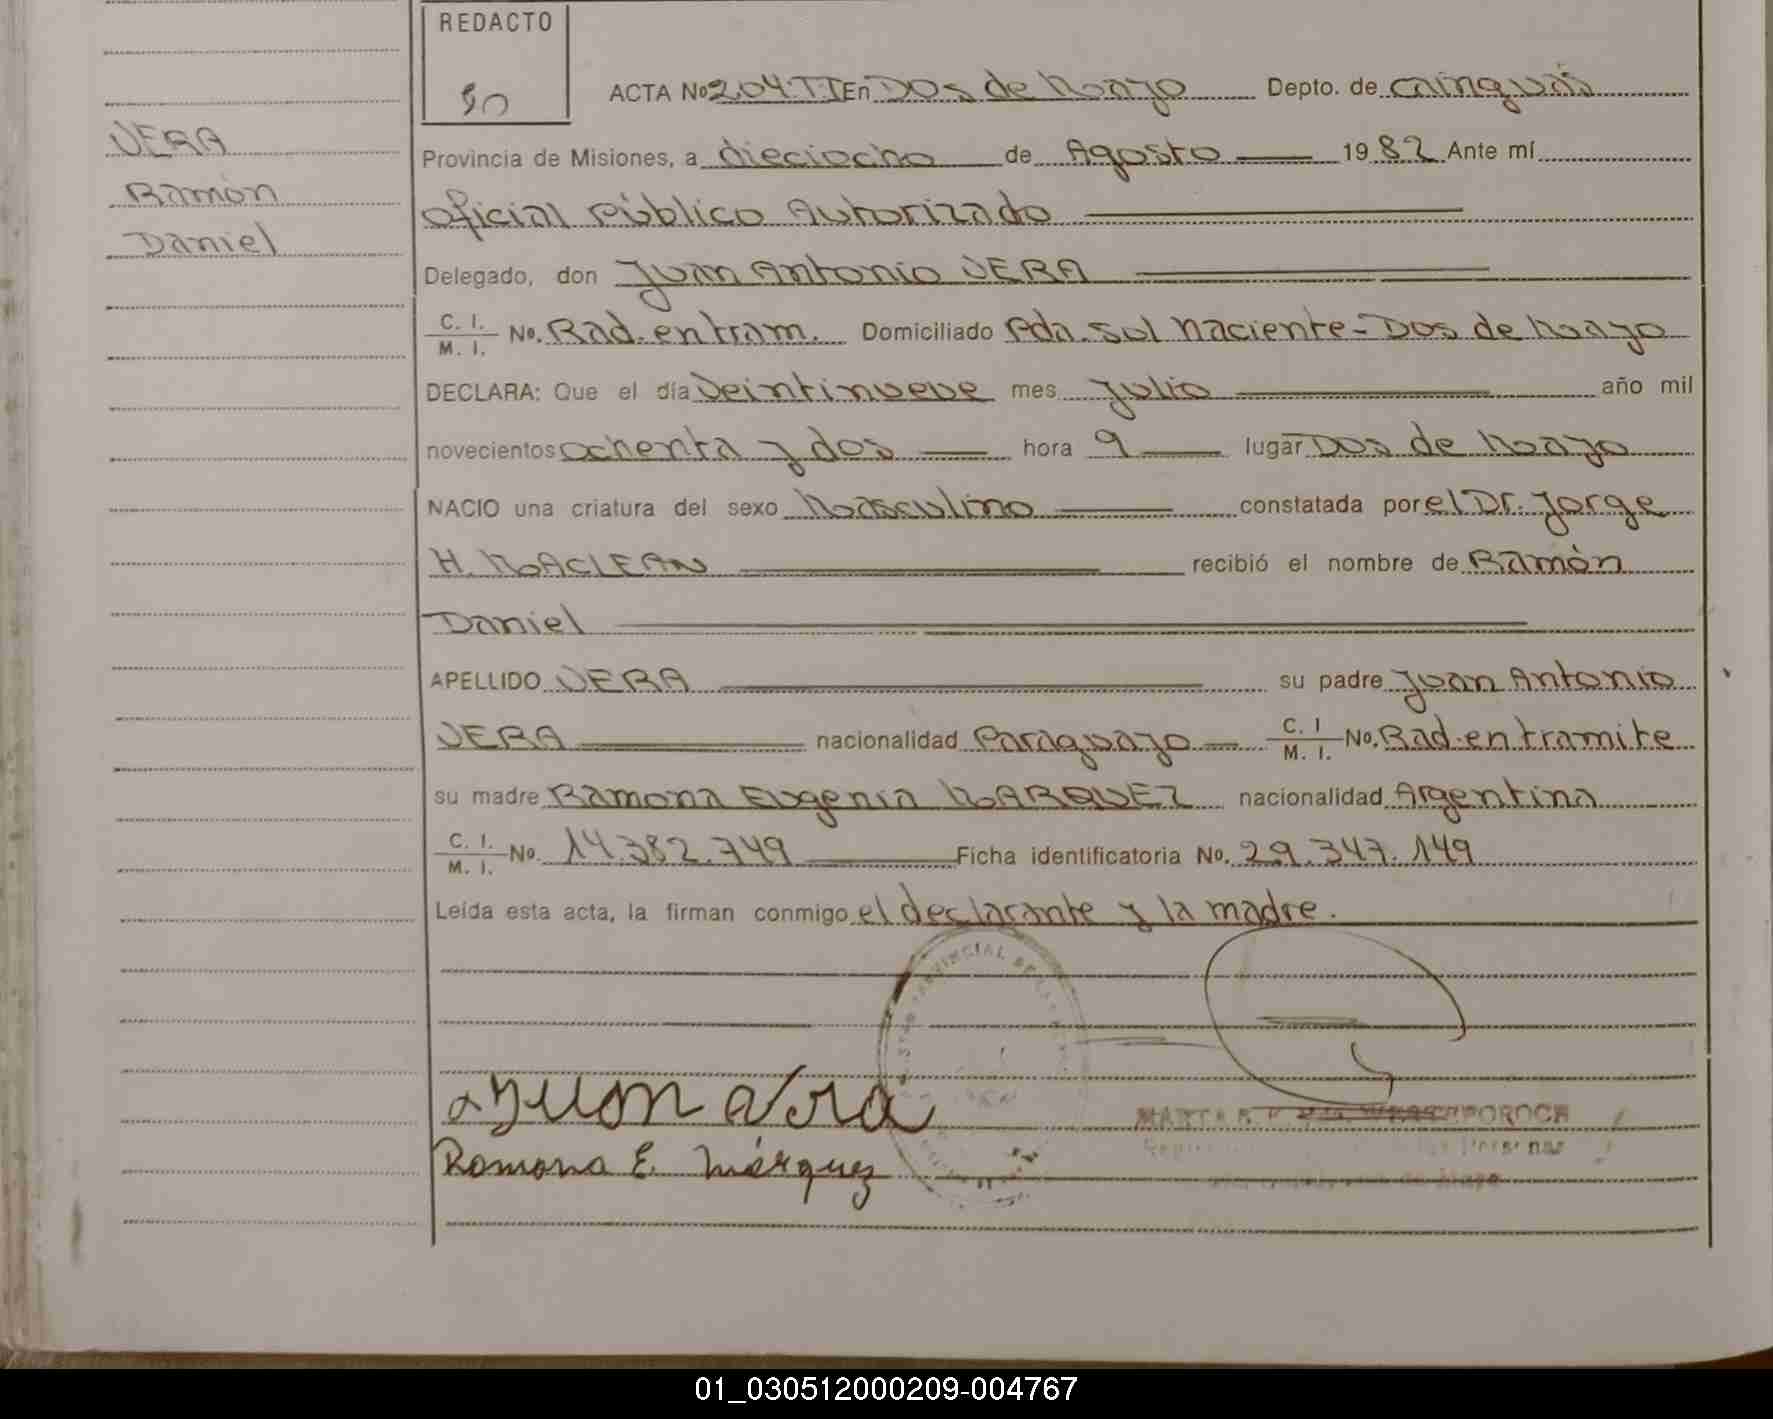 REDACTO
ACTA No 204.T.I En Dos de Mayo Depto. de Cainguás
VERA
Ramón
Daniel
Provincia de Misiones, a dieciocho de Agosto 1982 Ante mí
oficial Público Autorizado
Delegado, don Juan Antonio VERA
C. I.
M. I. No. Rad. en tram. Domiciliado Pda. Sol Naciente - Dos de Mayo
DECLARA: Que el día Veintinueve mes Julio año mil
novecientos ochenta y dos hora 9 lugar Dos de Mayo
NACIO una criatura del sexo Masculino constatada por el Dr. Jorge
H. MACLEAN recibió el nombre de Ramón
Daniel
APELLIDO VERA su padre Juan Antonio
VERA nacionalidad Paraguayo C. I
M. I. No. Rad. en tramite
su madre Ramona Eugenia MARQUEZ nacionalidad Argentina
C. I.
M. I. No. 14.382.749 Ficha identificatoria No. 29.347.149
Leída esta acta, la firman conmigo el declarante y la madre.
Ramona E. Márquez
01_030512000209-004767